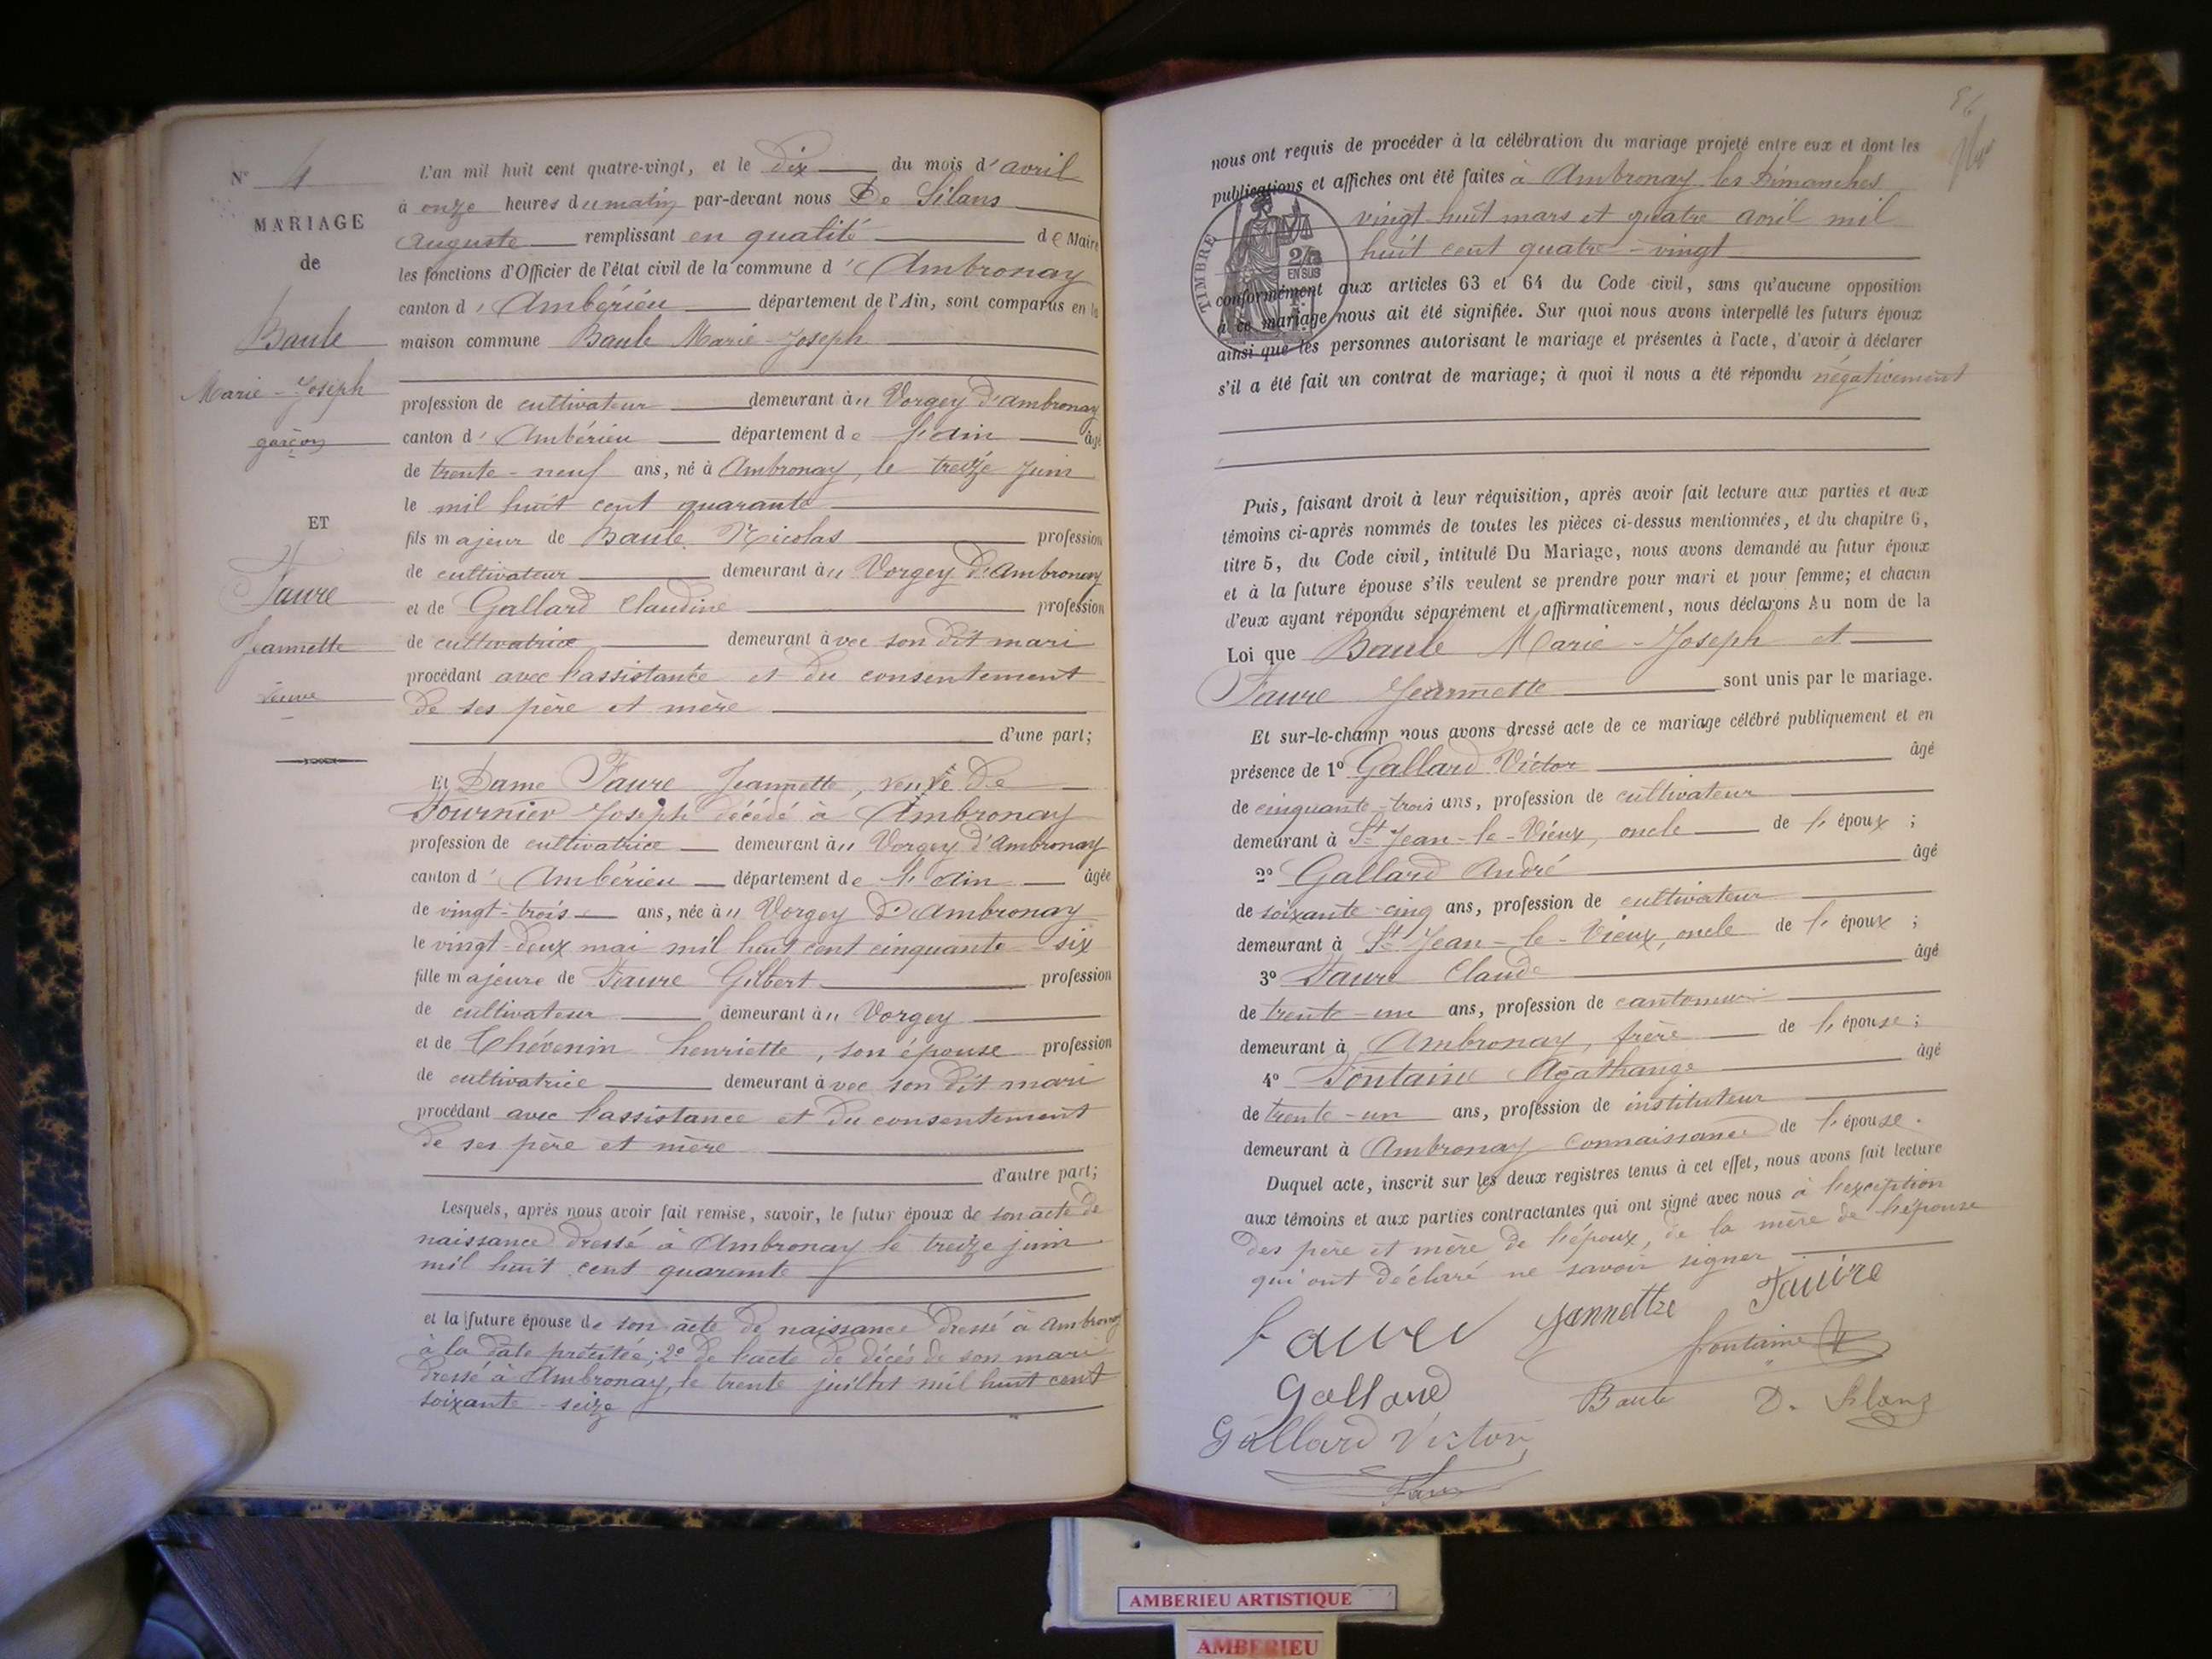 N° 4
MARIAGE
de
Baule
Marie-Joseph
garçon
ET
Faure
Jeannette
veuve
L'an mil huit cent quatre-vingt, et le dix du mois d'avril
à onze heures du matin par-devant nous De Silans
Auguste remplissant en qualité de Maire
les fonctions d'Officier de l'état civil de la commune d'Ambronay
canton d'Ambérieu département de l'Ain, sont comparus en la
maison commune Baule Marie-Joseph
profession de cultivateur demeurant au Vorgey d'ambronay
canton d'Ambérieu département de l'ain âgé
de trente-neuf ans, né à Ambronay, le treize juin
le mil huit cent quarante
fils majeur de Baule Nicolas profession
de cultivateur demeurant au Vorgey d'Ambronay
et de Gallard Claudine profession
de cultivatrice demeurant avec son dit mari
procédant avec l'assistance et du consentement
de ses père et mère
d'une part;
Et Dame Faure Jeannette, veuve de
Fournier Joseph décédé à Ambronay
profession de cultivatrice demeurant au Vorgey d'Ambronay
canton d'Ambérieu département de l'ain âgée
de vingt-trois ans, née au Vorgey d'Ambronay
le vingt-deux mai mil huit cent cinquante-six
fille majeure de Faure Gilbert profession
de cultivateur demeurant au Vorgey
et de Thévenin henriette, son épouse profession
de cultivatrice demeurant avec son dit mari
procédant avec l'assistance et du consentement
de ses père et mère
d'autre part;
Lesquels, après nous avoir fait remise, savoir, le futur époux de son acte de
naissance dressé à Ambronay le treize juin
mil huit cent quarante
et la future épouse de son acte de naissance dressé à Ambronay
à la date précitée; 2° de l'acte de décès de son mari
dressé à Ambronay, le trente juillet mil huit cent
soixante-seize
nous ont requis de procéder à la célébration du mariage projeté entre eux et dont les
publications et affiches ont été faites à Ambronay les Dimanches
vingt-huit mars et quatre avril mil
huit cent quatre-vingt
TIMBRE
2/10
EN SUS
conformément aux articles 63 et 64 du Code civil, sans qu'aucune opposition
à ce mariage nous ait été signifiée. Sur quoi nous avons interpellé les futurs époux
ainsi que les personnes autorisant le mariage et présentes à l'acte, d'avoir à déclarer
s'il a été fait un contrat de mariage; à quoi il nous a été répondu négativement
Puis, faisant droit à leur réquisition, après avoir fait lecture aux parties et aux
témoins ci-après nommés de toutes les pièces ci-dessus mentionnées, et du chapitre 6,
titre 5, du Code civil, intitulé Du Mariage, nous avons demandé au futur époux
et à la future épouse s'ils veulent se prendre pour mari et pour femme; et chacun
d'eux ayant répondu séparément et affirmativement, nous déclarons Au nom de la
Loi que Baule Marie-Joseph et
Faure Jeannette sont unis par le mariage.
Et sur-le-champ nous avons dressé acte de ce mariage célébré publiquement et en
présence de 1° Gallard Victor âgé
de cinquante-trois ans, profession de cultivateur
demeurant à St Jean-le-Vieux, oncle de l'époux ;
2° Gallard André âgé
de soixante-cinq ans, profession de cultivateur
demeurant à St Jean-le-Vieux, oncle de l'époux ;
3° Faure Claude âgé
de trente-un ans, profession de cantonnier
demeurant à Ambronay, frère de l'épouse ;
4° Fontaine Agathange âgé
de trente-un ans, profession de instituteur
demeurant à Ambronay connaissance de l'épouse.
Duquel acte, inscrit sur les deux registres tenus à cet effet, nous avons fait lecture
aux témoins et aux parties contractantes qui ont signé avec nous à l'exception
des père et mère de l'époux, de la mère de l'épouse
qui ont déclaré ne savoir signer
Faure Jannette
fontaine
Gallard
Baule D. Silans
Gallard Victor
Faure
AMBERIEU ARTISTIQUE
AMBERIEU